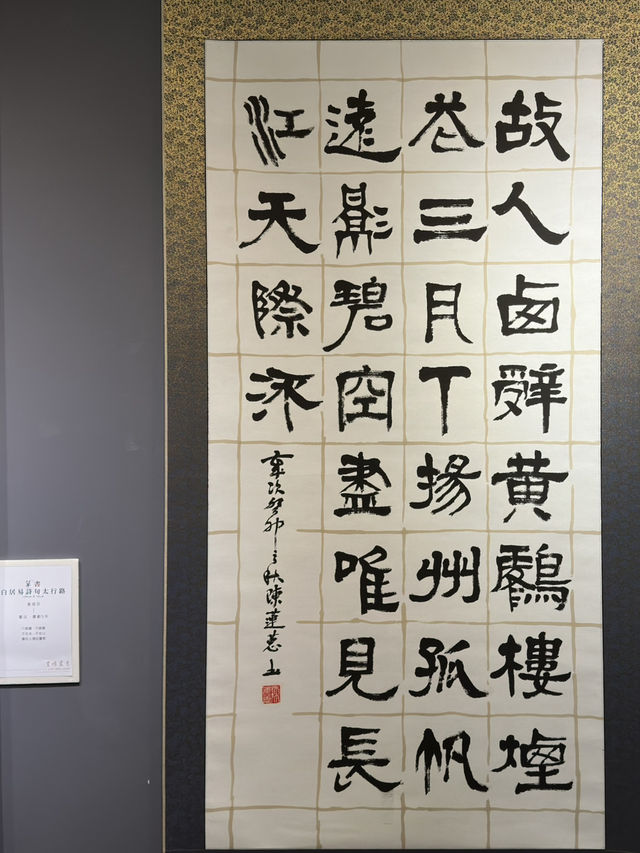 故人西辭黄鶴樓煙
花三月下揚州孤帆
遠影碧空盡唯見長
江天際流
歲次癸卯之秋陳蓮
篆書
白居易詩句太行路